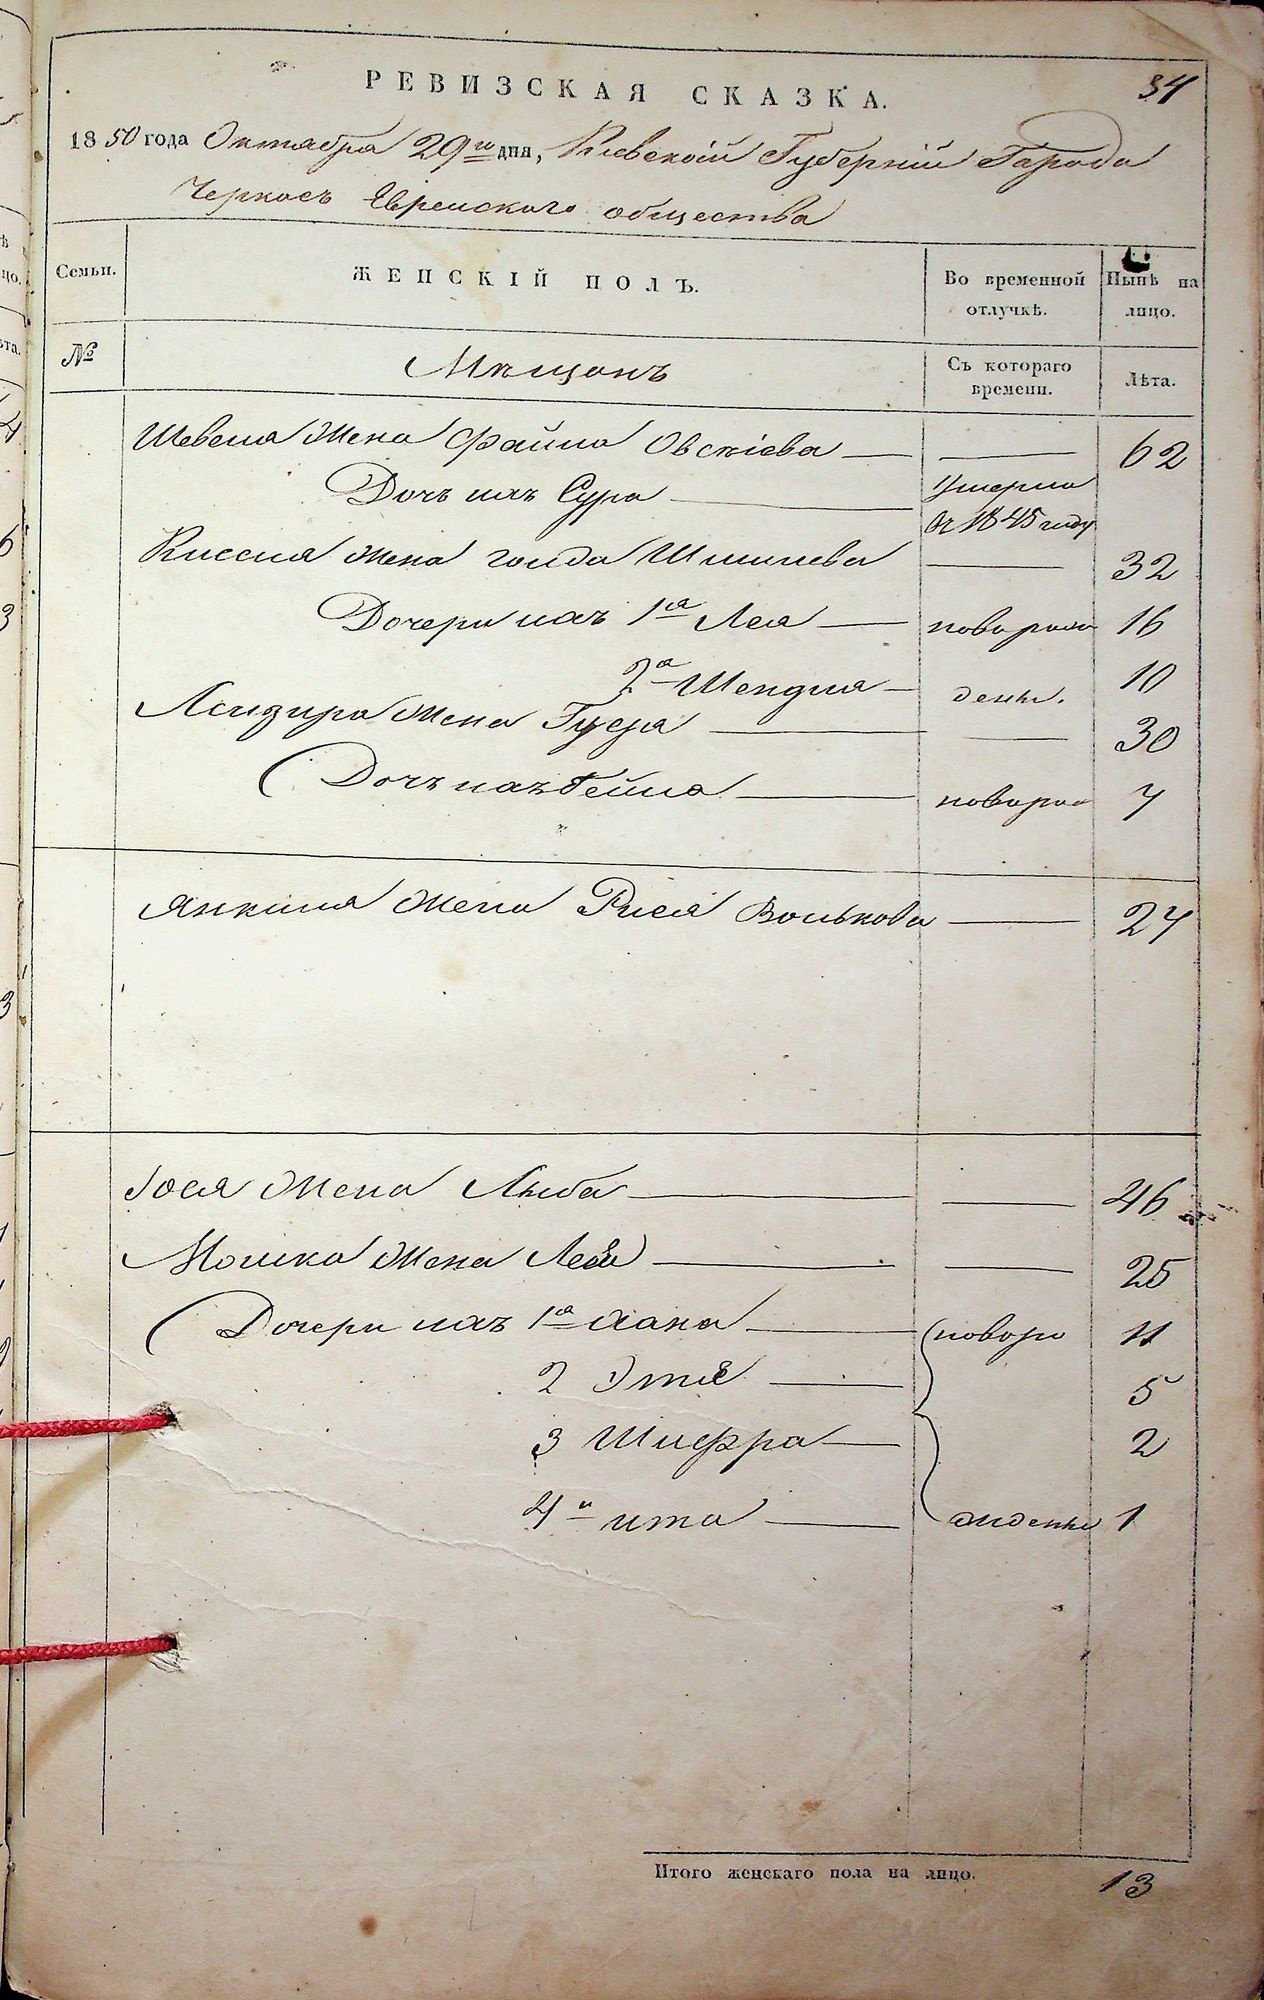 34
РЕВИЗСКАЯ СКАЗКА.
1850 года Октября 29го дня, Киевской Губерніи Города
Черкасъ Еврейского общества
Семьи. ЖЕНСКІЙ ПОЛЪ. Во временной отлучкѣ. Нынѣ на лицо.
№ Мѣщанъ Съ котораго времени. Лѣта.
Шевеля жена Файга Овсѣіева — — 62
Дочь ихъ Сура — Умерла въ 1845 году
Киселя жена Голда Шмилева — 32
Дочери ихъ 1ая Лея — новорож 16
2я Шендля — денн. 10
Лейзира жена Гуся — — 30
Дочь ихъ Бейла — новорож 7
Янкеля жена Рися Волькова — 27
Іося жена Лыба — — 46
Мошка жена Лея — — 25
Дочери ихъ 1ая Хана — новоро 11
2 Этля — 5
3 Шифра — 2
4я ита — жденны 1
Итого женскаго пола на лицо. 13